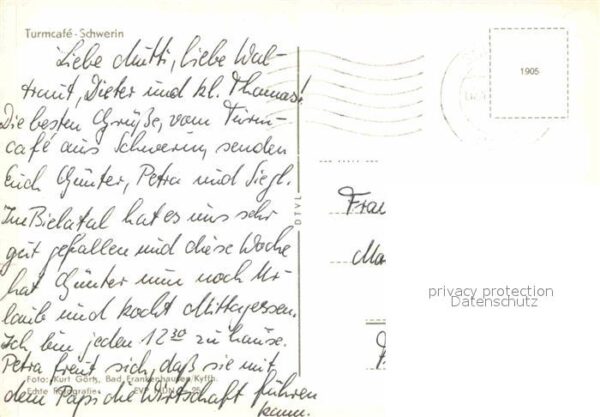 Turmcafé - Schwerin
Liebe Mutti, liebe Wal-
traut, Dieter und kl. Thomas!
Die besten Grüße, vom Turm-
café aus Schwerin, senden
Euch Günter, Petra und Siegl.
Im Bielatal hat es uns sehr
gut gefallen und diese Woche
hat Günter nun noch Ur-
laub und kocht Mittagessen.
Ich bin jeden 12³⁰ zu hause.
Petra freut sich, daß sie mit
dem Papi die Wirtschaft führen
kann.
Foto: Kurt Görtz, Bad Frankenhausen/Kyffh.
Echte Fotografie
DTVL
1905
Frau
privacy protection
Datenschutz